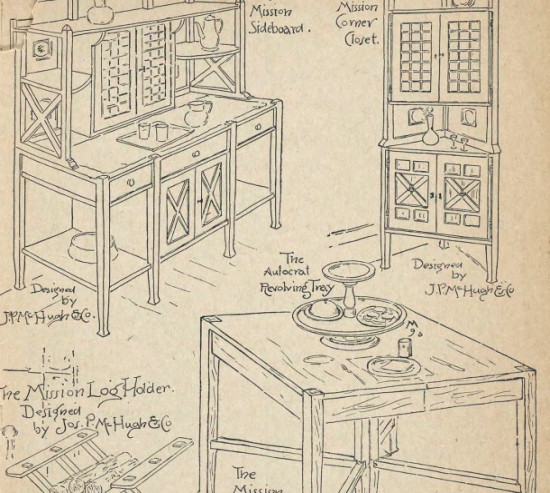 Mission
Sideboard.
Mission
Corner
Closet.
Designed
by
J.P. McHugh & Co.
The
Autocrat
Revolving Tray
Designed
by
J.P. McHugh & Co
The Mission Log Holder.
Designed
by Jos. P. McHugh & Co
The
Mission